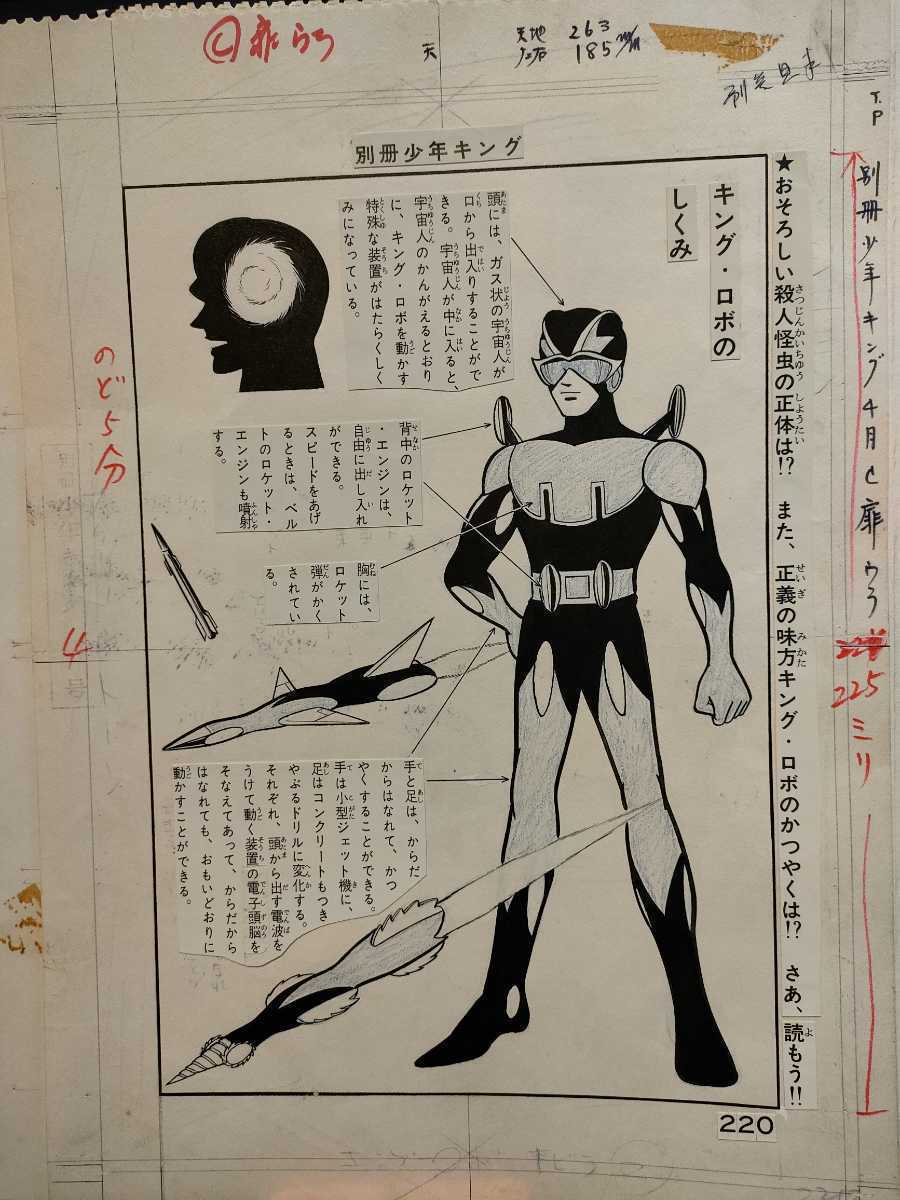 Ⓒ扉うら
天
天地 263
左右 185㎜
別冊見本
T.P
別冊少年キング4月C扉ウラ
225ミリ
別冊少年キング
★おそろしい殺人怪虫の正体は!? また、正義の味方キング・ロボのかつやくは!? さあ、読もう!!
キング・ロボの
しくみ
頭には、ガス状の宇宙人が
口から出入りすることがで
きる。宇宙人が中に入ると、
宇宙人のかんがえるとおり
に、キング・ロボを動かす
特殊な装置がはたらくしく
みになっている。
背中のロケット
・エンジンは、
自由に出し入れ
ができる。
スピードをあげ
るときは、ベル
トのロケット・
エンジンも噴射
する。
胸には、
ロケット
弾がかく
されてい
る。
手と足は、からだ
からはなれて、かつ
やくすることができる。
手は小型ジェット機に、
足はコンクリートもつき
やぶるドリルに変化する。
それぞれ、頭から出す電波を
うけて動く装置の電子頭脳を
そなえてあって、からだから
はなれても、おもいどおりに
動かすことができる。
のど5分
4
220